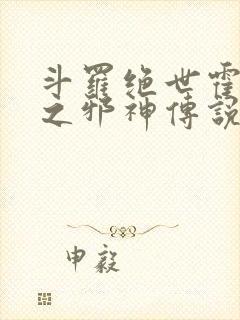 斗羅绝世霍
之邪神傳說
申毅